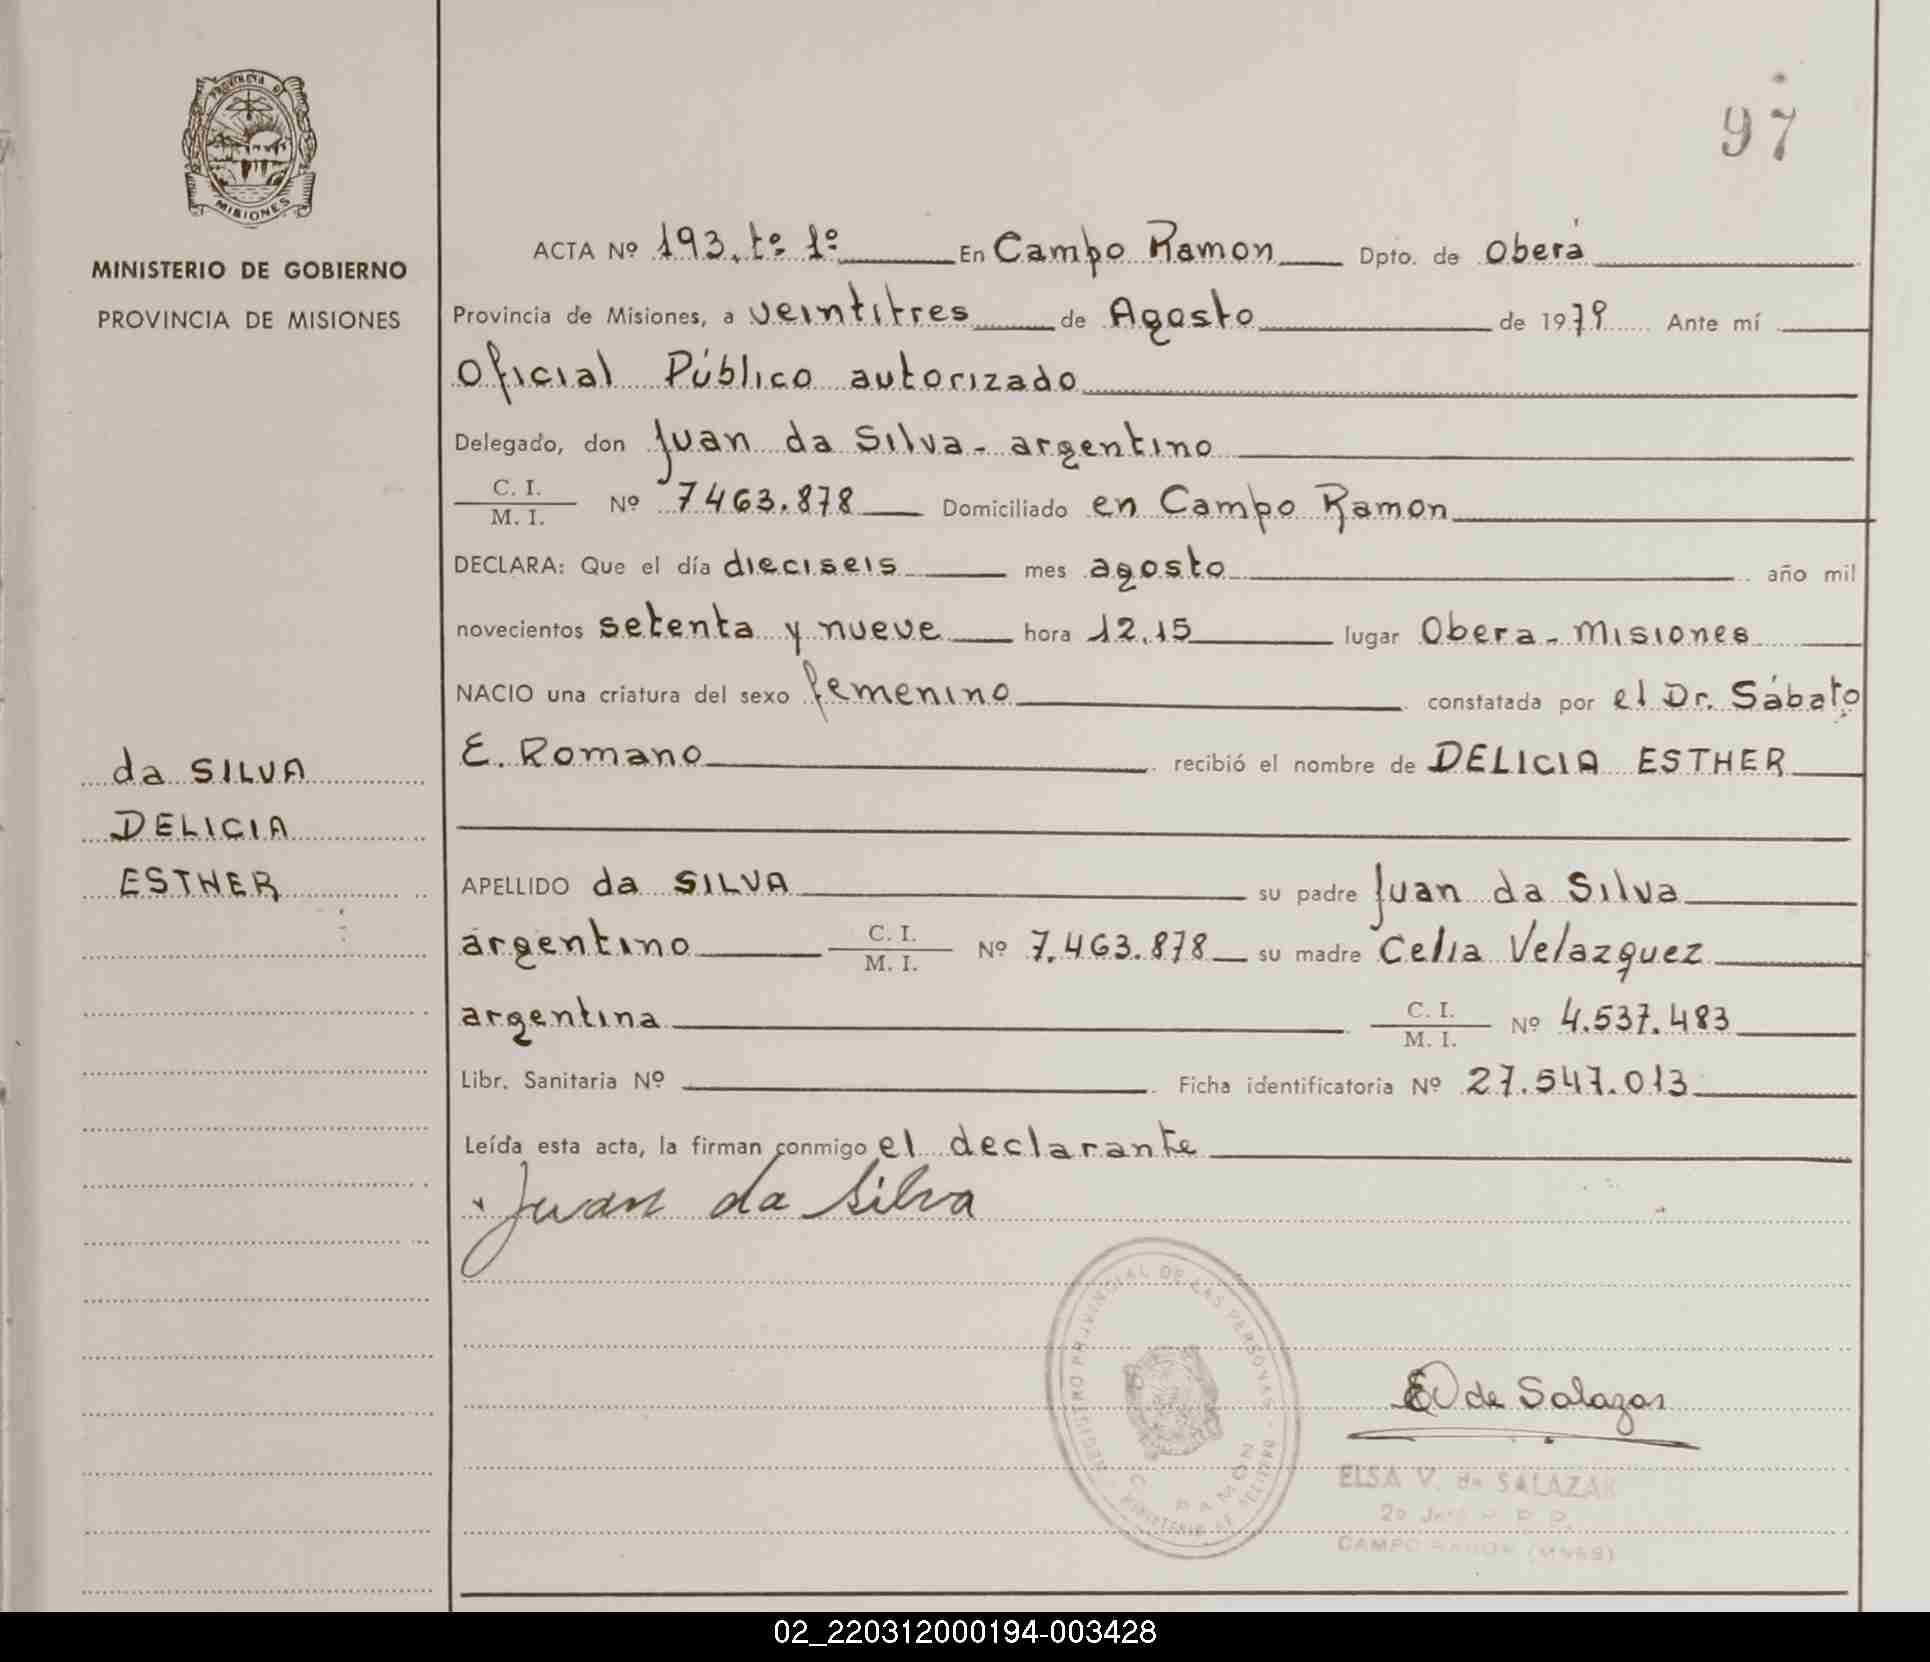 PROVINCIA D
MISIONES
MINISTERIO DE GOBIERNO
PROVINCIA DE MISIONES
97
ACTA Nº 193. tº 1º En Campo Ramon Dpto. de Oberá
Provincia de Misiones, a veintitres de Agosto de 1979 Ante mí
Oficial Público autorizado
Delegado, don Juan da Silva - argentino
C. I.
M. I. Nº 7463.878 Domiciliado en Campo Ramon
DECLARA: Que el día dieciseis mes agosto año mil
novecientos setenta y nueve hora 12.15 lugar Obera - Misiones
NACIO una criatura del sexo femenino constatada por el Dr. Sábato
E. Romano recibió el nombre de DELICIA ESTHER
da SILVA
DELICIA
ESTHER
APELLIDO da SILVA su padre Juan da Silva
argentino C. I.
M. I. Nº 7.463.878 su madre Celia Velazquez
argentina C. I.
M. I. Nº 4.537.483
Libr. Sanitaria Nº Ficha identificatoria Nº 27.547.013
Leída esta acta, la firman conmigo el declarante
Juan da Silva
REGISTRO PROVINCIAL DE LAS PERSONAS
RAMON
MINISTERIO DE GOBIERNO
E V de Salazar
ELSA V. de SALAZAR
CAMPO RAMON (MNES)
02_220312000194-003428